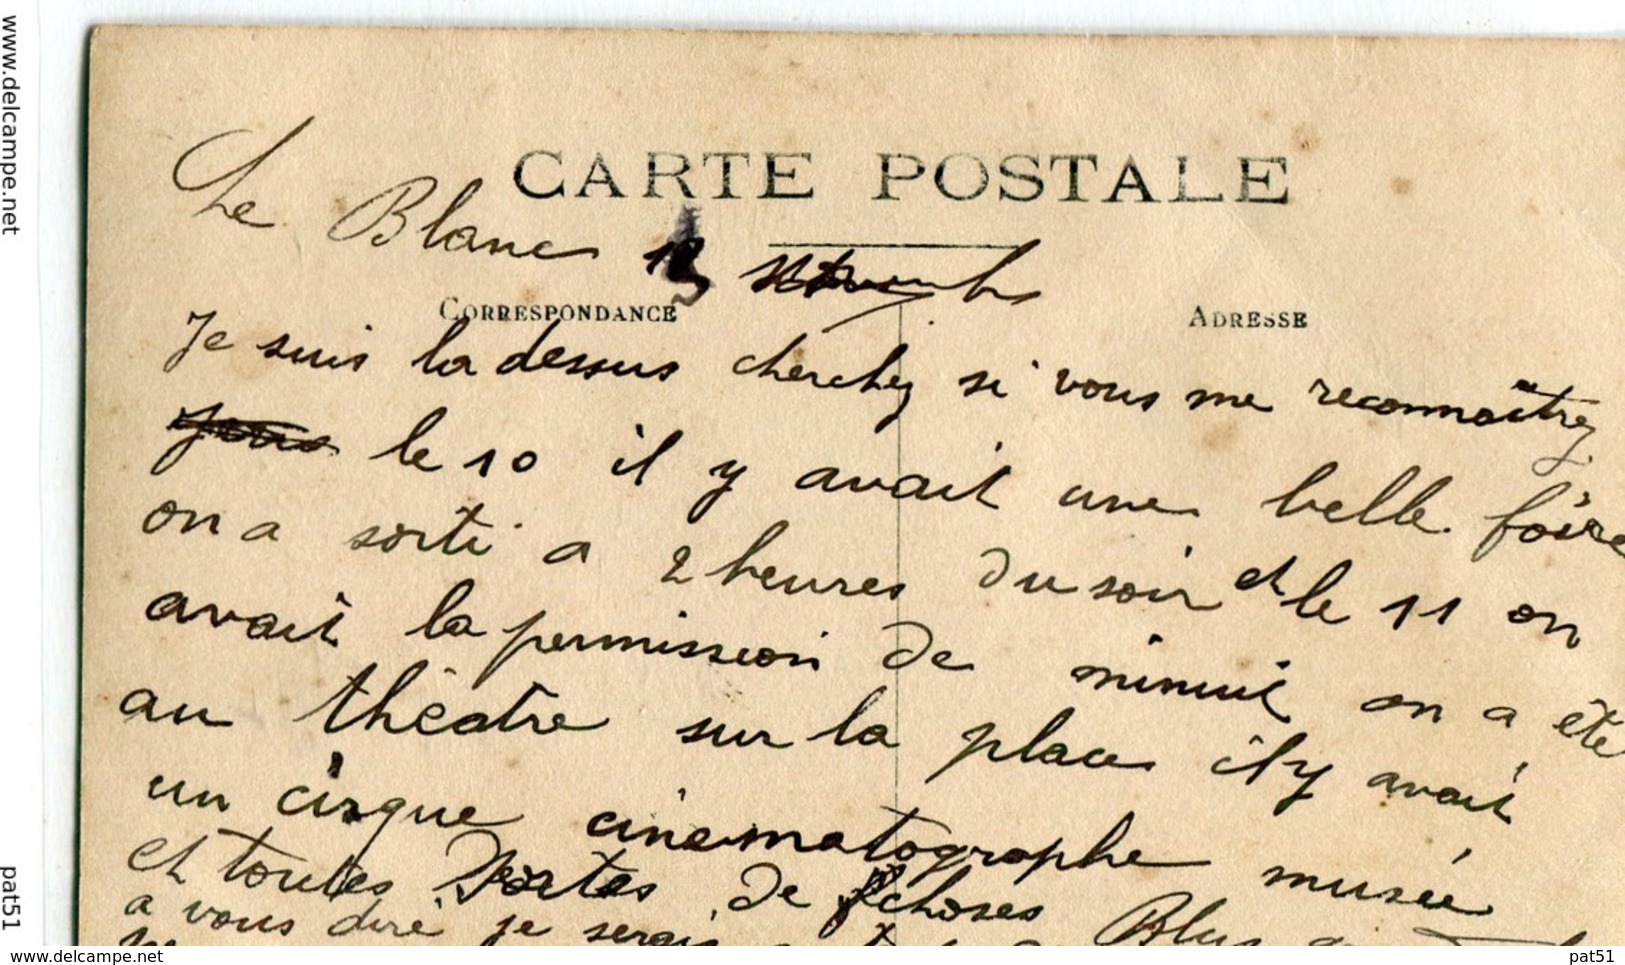 CARTE POSTALE
Le Blanc 13 Novembre
CORRESPONDANCE
ADRESSE
Je suis la dessus cherchez si vous me reconnaîtrez
le 10 il y avait une belle foire
on a sorti a 2 heures du soir et le 11 on
avait la permission de minuit on a été
au théatre sur la place il y avait
un cirque cinematographe musée
et toutes sortes de choses Plus
a vous dire je serais
www.delcampe.net
pat51
www.delcampe.net
pat51